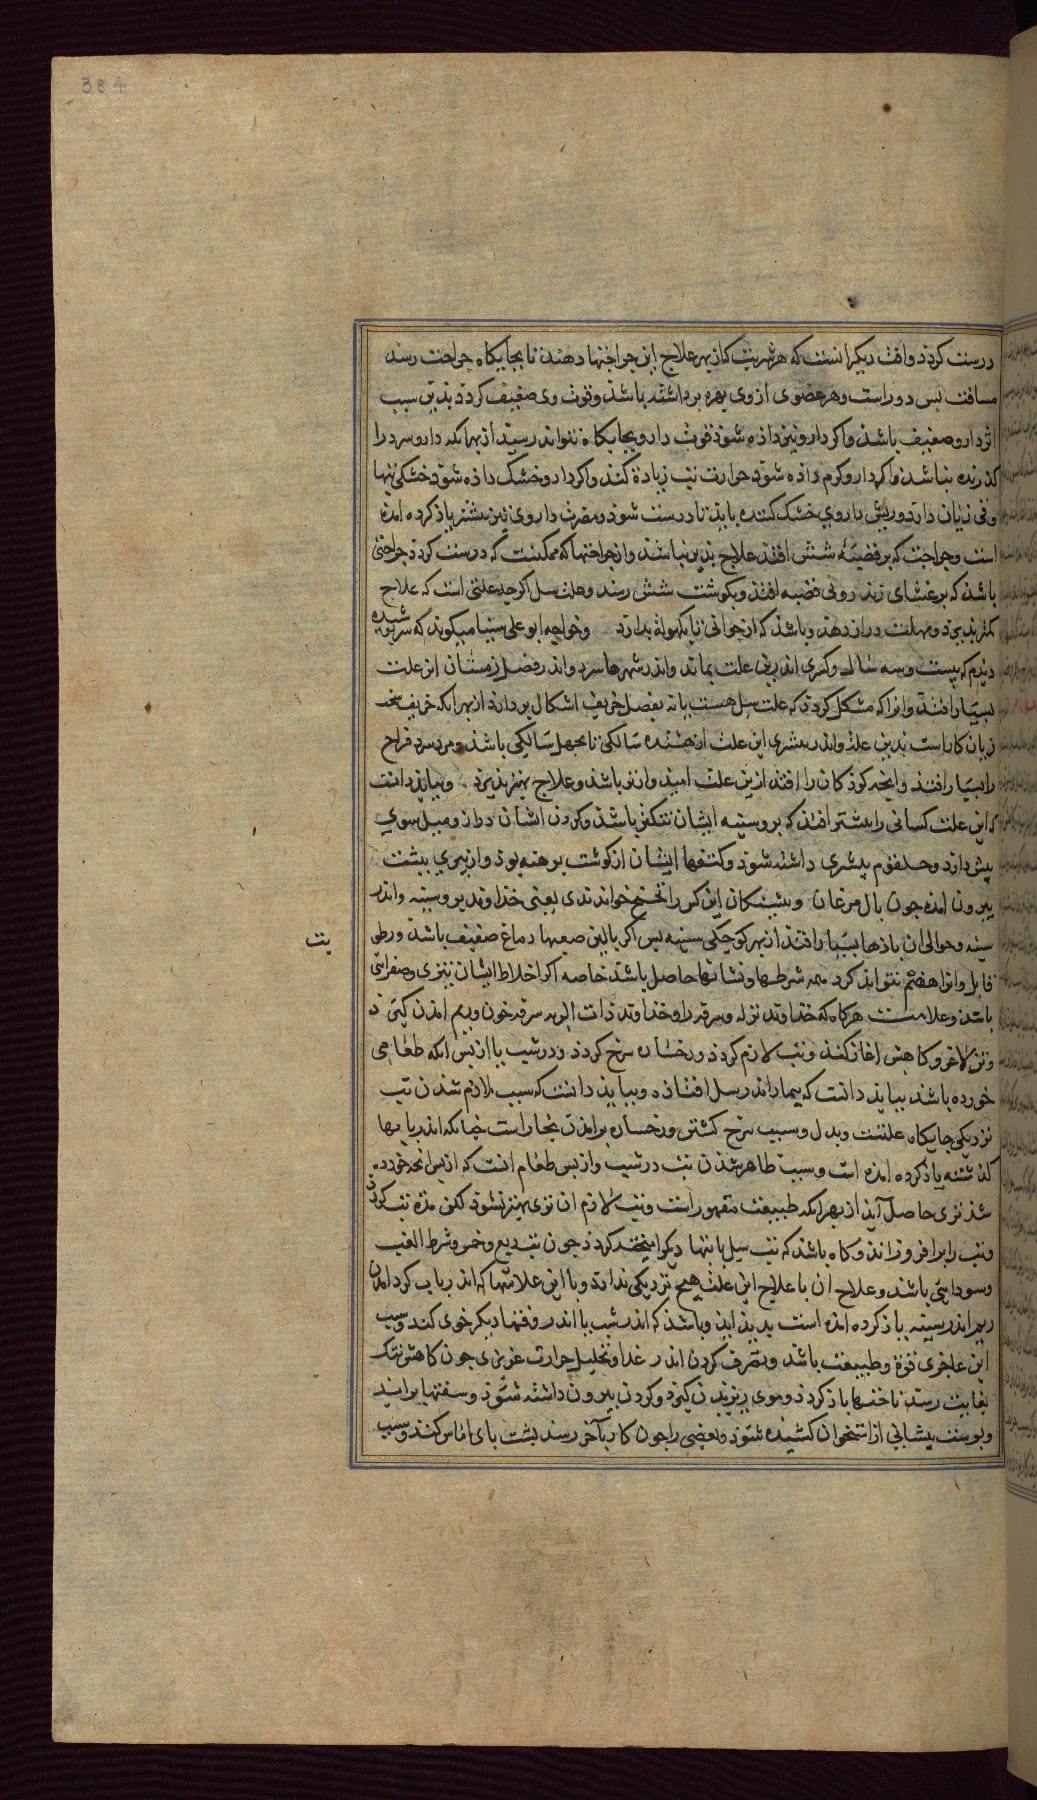 384
درست کردد وافت دیکر انست که هر شربت که از بهر علاج این جراحتها دهند تا بجایکاه جراحت رسد
مسافت بس دور است وهر عضوی از وی بهره برداشته باشد وقوت وی ضعیف کردد بدین سبب
اثر دارو ضعیف باشذ واکر دارو تیز داذه شوذ قوت دارو بجایکاه نتواند رسید از بهر انکه داروء سرد را
کذرنده نباشد واکر دارو کرم داذه شوذ حرارت تب زیادة کند واکر دارو خشک داذه شوذ خشکی تبها
وقی زیان دارد وریش داروی خشک کننده باید تا درست شوذ ومضرت داروی تیز بیشتر یاذ کرده امذه
است وجراحت که بر قصبهٔ شش افتد علاج بذیر نباشد واز جراحتها که ممکنست که درست کردد جراحتی
باشذ که بر غشای اندرونی قصبه افتد وبکوشت شش رسد وعلت سل اکرچه علتی است که علاج
کمتر بذیرد ومهلت دراز دهد وباشذ که از جوانی تا بکهولة بدارد وخواجه ابو علی سینا میکوید که سر بوشیده
دیذم که بیست وسه سال وکسری اندرین علت بماند واندر شهرهاء سرد واندر فصل زمستان این علت
بسیار افتد وانرا که مشکل کردد که علت سل هست یا نه بفصل خریف اشکال بردارد از بهر انکه خریف سخت
زیان کار است بدین علت واندر بیشتری این علت از هشده سالکی تا بچهل سالکی باشد ومردم سرد مزاج
را بسیار افتد وانچه کوذکان را افتد ازین علت امید وارتر باشد وعلاج بهتر بذیرد وبباید دانست
که این علت کسانی را بیشتر افتد که بر وسینه ایشان تنکتر باشذ وکردن اشان دراز ومیل سوی
بیش دارد وحلقوم بیشتری داشته شوذ وکتفها ایشان از کوشت برهنه بوذ واز بهری ببشت
بیرون امده جون بال مرغان وبیشینکان این کس را مجنح خواندندی یعنی خذاوند بر وسینه واندر
سینه وحوالی ان باذها بسیار افتد از بهر کوجکی سینه بس اکر با این صعبها دماغ ضعیف باشد ورطوبت
قابل وانرا هضم نتواند کرد همه شرطها ونشانها حاصل باشد خاصه اکر اخلاط ایشان تیزی وصفرایی
باشد وعلامت هرکاه که خذاوند نزله وسرفه را وخذاوند ذات الریه سرفه خون وریم امذن کیرد
وتن لاغر وکاهش اغاز کند وتب لازم کردد ورخساره سرخ کردد ودر شب یا از بس انکه طعامی
خورده باشد بباید دانست که بیمار اندر سل افتاده وبباید دانست که سبب لازم شدن تب
نزدیکی جایکاه علتست وبدل وسبب سرخ کشتن رخساره برامدن بخار است چنانکه اندر بابها
کذشته یاذ کرده امده است وسبب ظاهر شدن تب در شب واز بس طعام انست که از بس انچه خورده
شد تری حاصل آید از بهر انکه طبیعت مقهور است وتب لازم ان تری بهتر نشود لکن مدد تب کردد
وتب را برافروزاند وکاه باشد که تب سل با تبها دیکر امیخته کردد جون تب ربع وخمس وشطر الغب
وسودایی باشد وعلاج ان با علاج این علت هیچ نزدیکی ندارد وبا این علامتها که اندر باب کرد امدن
ریم اندر سینه یاذ کرده امده است بدید اید وباشد که اندر شب یا اندر وقتها دیکر خوی کند وسبب
این عاجزی قوة وطبیعت باشد وتصرف کردن اندر غذا وتحلیل حرارت غریزی جون کاهش تنک
بغایت رسد ناخنها باز کردد وموی بریزیدن کیرد وکردن بیرون داشته شوذ وسفتها برایند
وبوست بیشانی از استخوان کشیده شود وبعضی را جون کار بآخر رسد بشت بای اماس کند وسبب